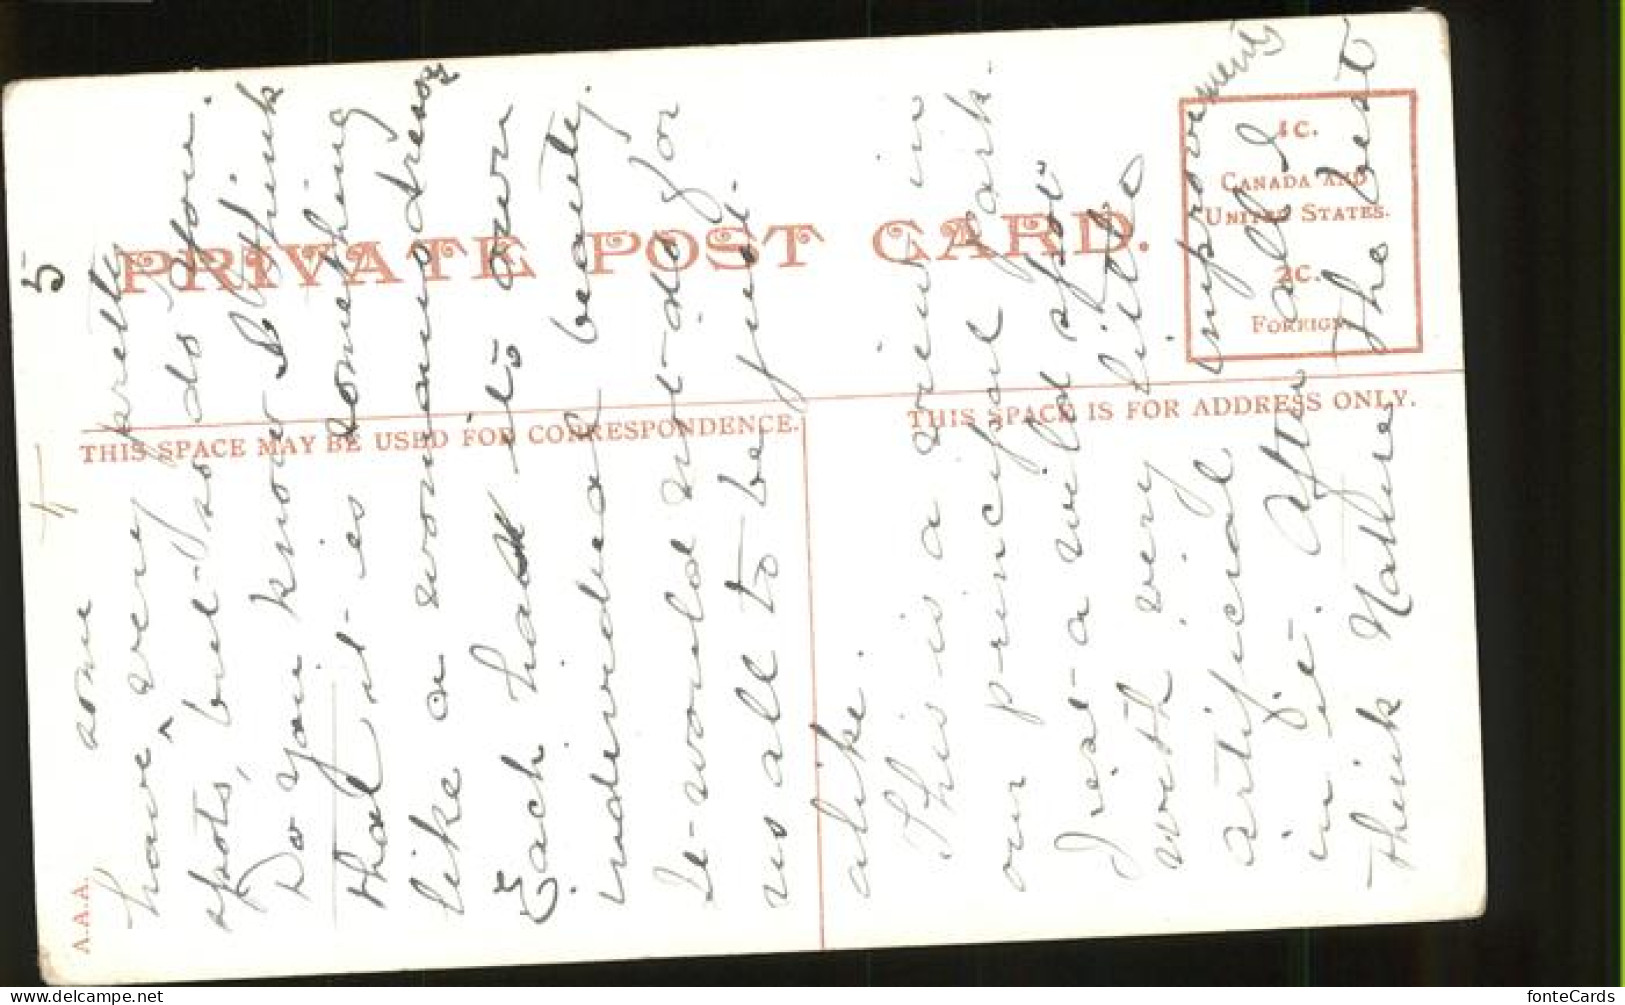 5
PRIVATE POST CARD.
1C.
CANADA AND
UNITED STATES.
2C.
FOREIGN.
THIS SPACE MAY BE USED FOR CORRESPONDENCE.
THIS SPACE IS FOR ADDRESS ONLY.
A.A.A.
some
have very pretty
spots, but so do you.
Do you know I think
that it is something
like a womans dress
Each has its own
individual beauty.
It would not do for
us all to be just
alike.
This is a view in
our principal park.
Just a wild spot
with very little
artificial improvements
in it. After all I
think Nature the best
fonteCards